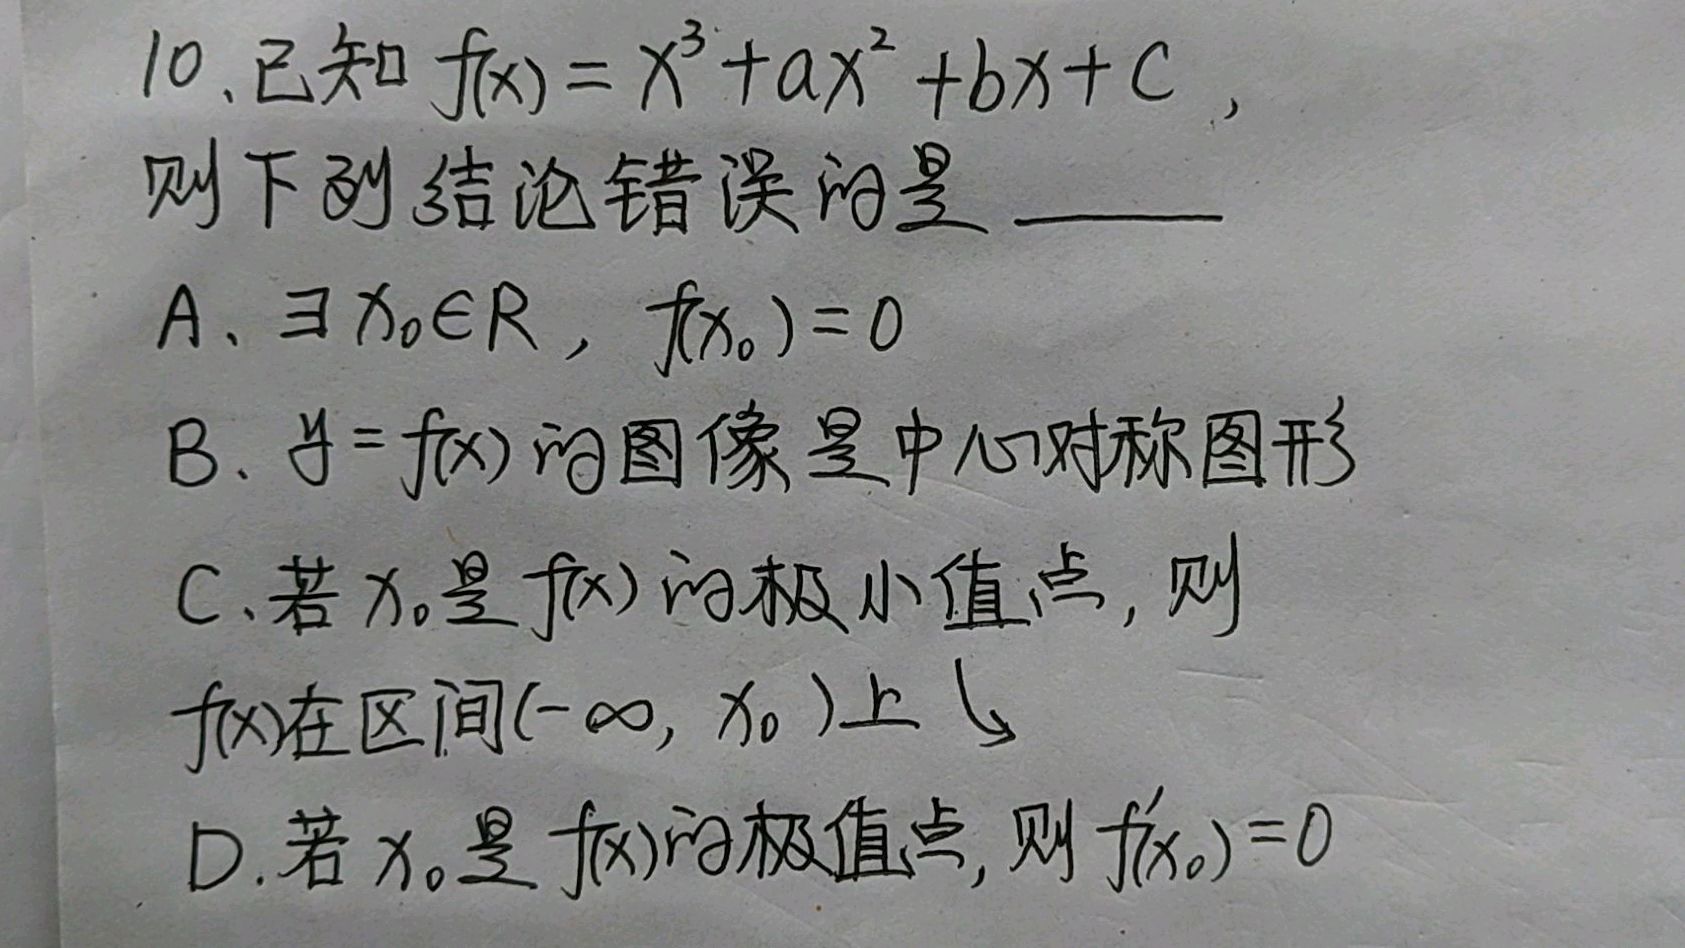 10、已知 f(x)=x³+ax²+bx+c，
则下列结论错误的是 ____
A、∃x₀∈R，f(x₀)=0
B、y=f(x)的图像是中心对称图形
C、若x₀是f(x)的极小值点，则
f(x)在区间(-∞, x₀)上↘
D.若x₀是f(x)的极值点，则f′(x₀)=0